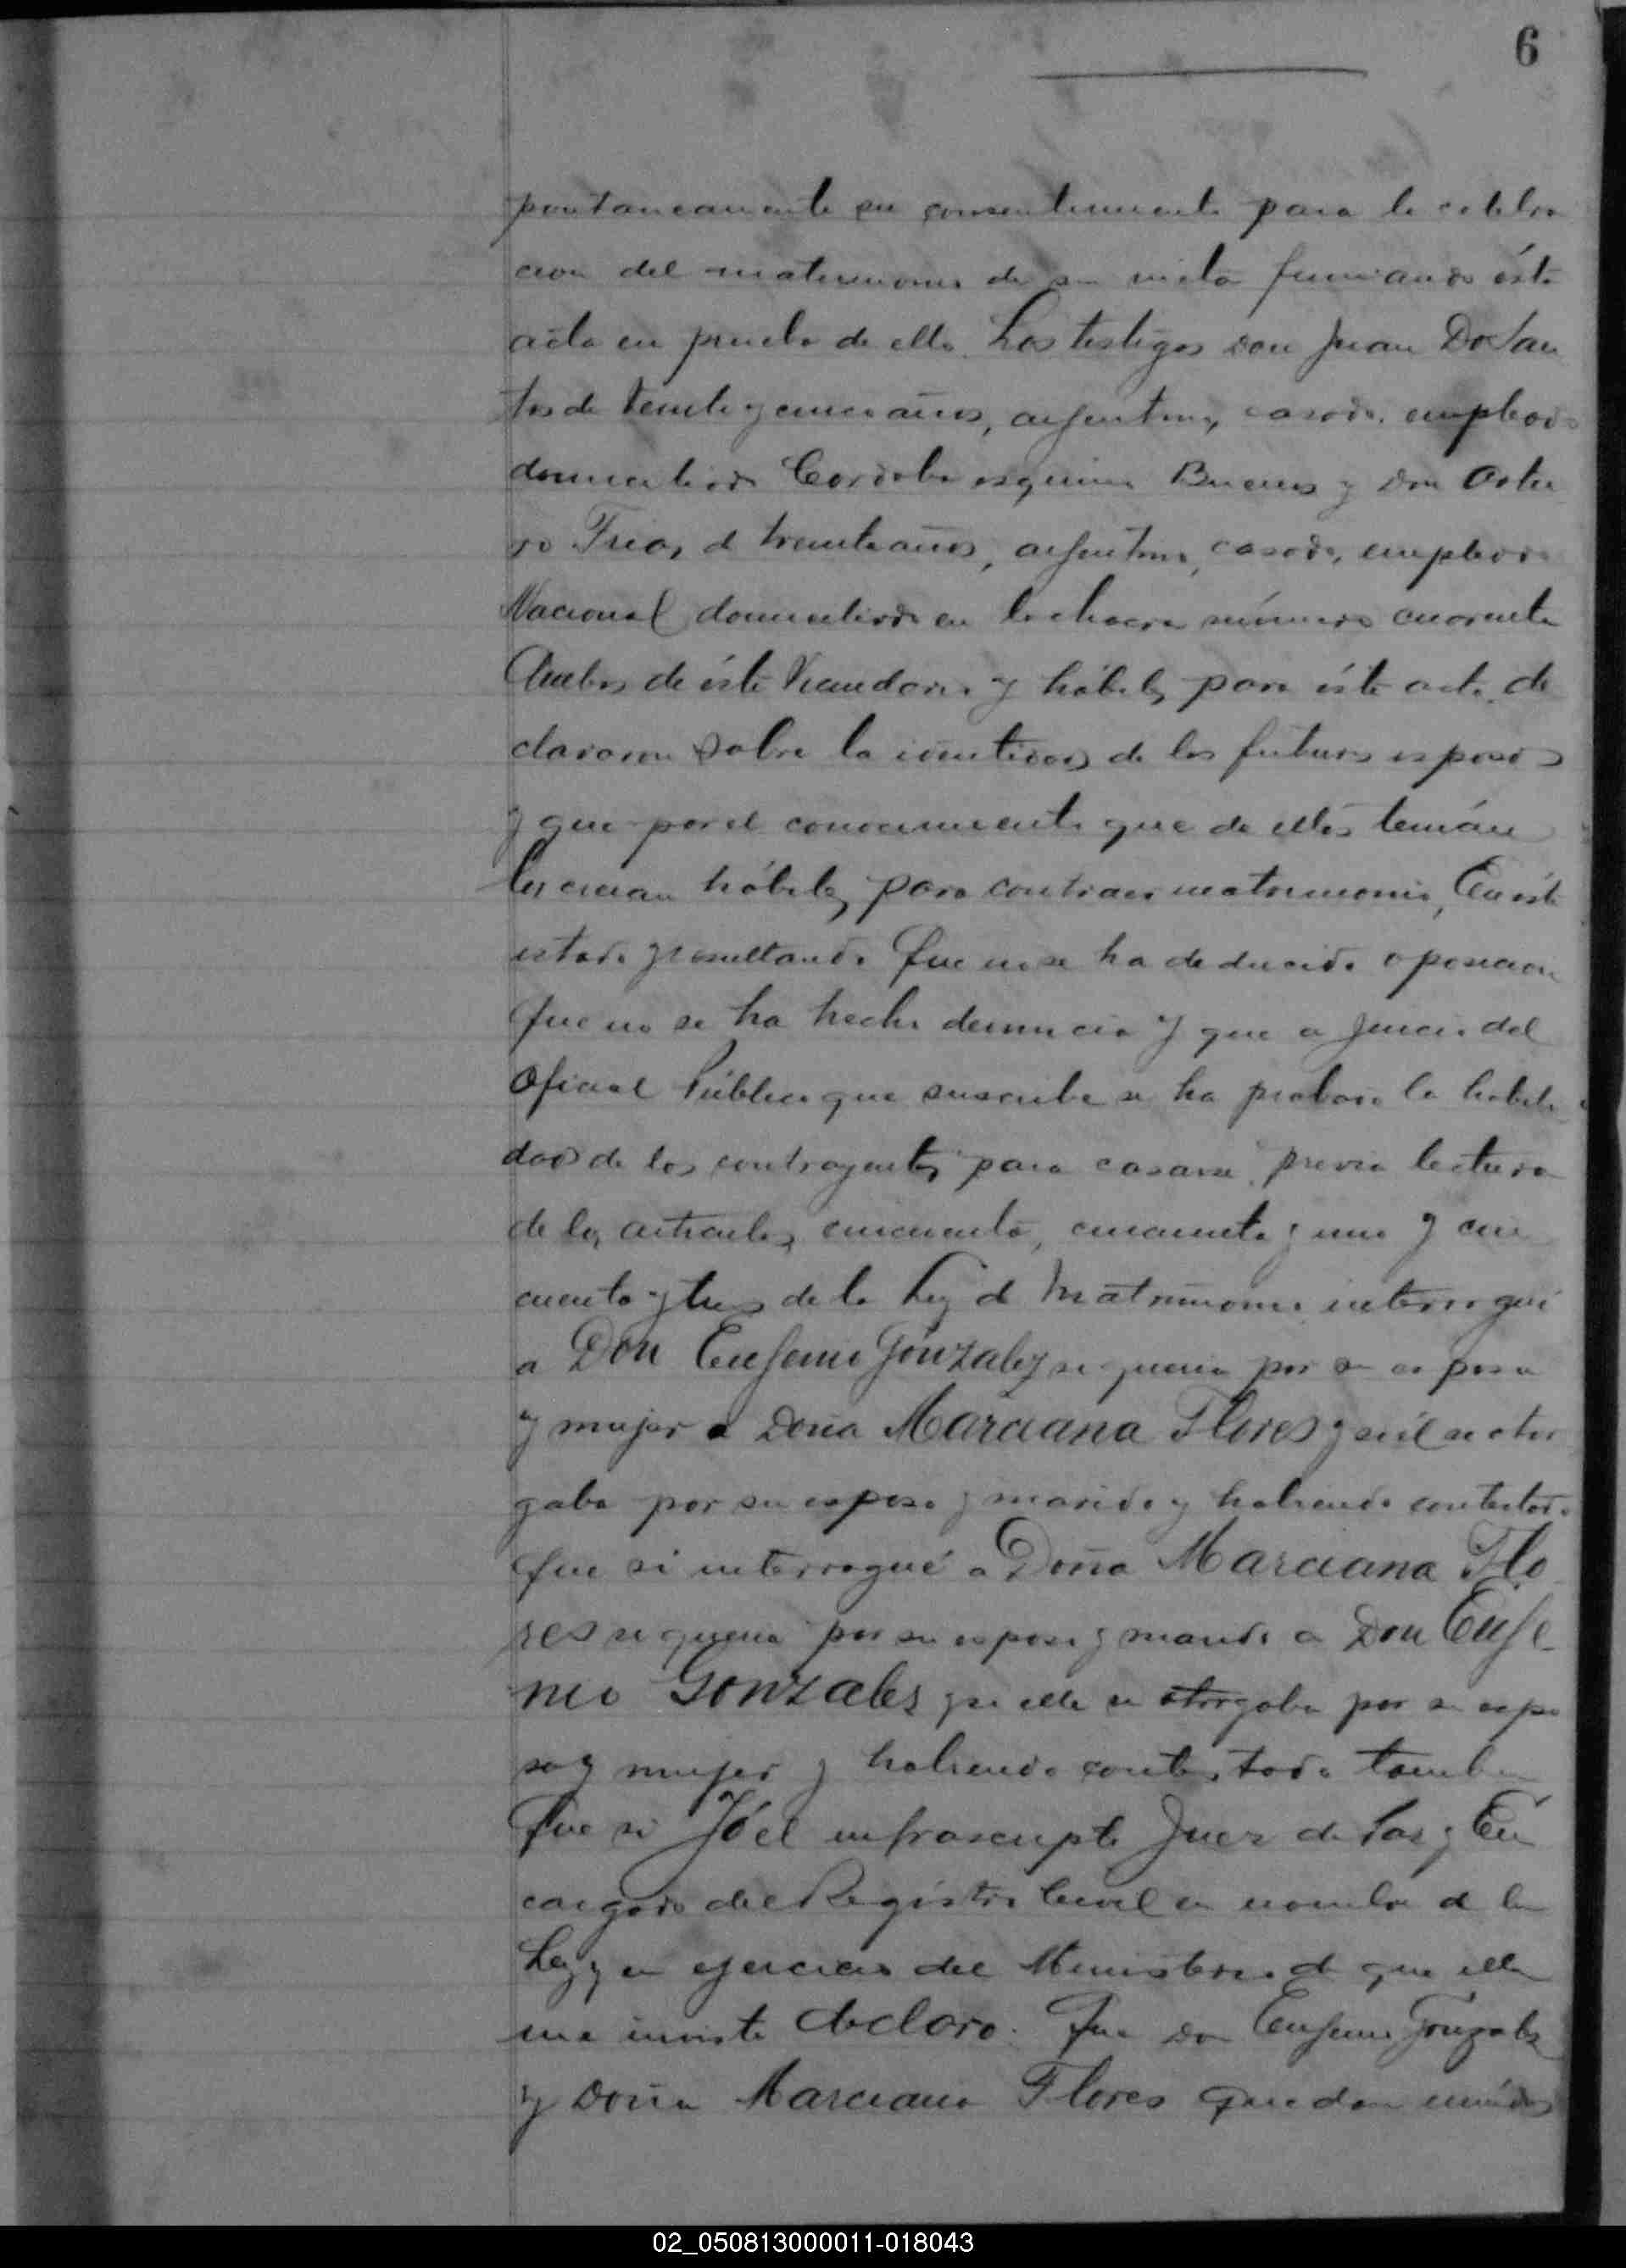 6
pontaneamente su consentimiento para la celebra
cion del matrimonio de su nieta firmando éste
acta en prueba de ello. Los testigos don Juan Do San
tos de veinte y cinco años, argentino, casado, empleado
domiciliado Cordoba esquina Buenos y don Artu
ro Frias, de treinta años, argentino, casado, empleado
Nacional domiciliado en la chacra número cuarenta
Ambos de éste Vecindario y hábiles para éste acto, de
clararon sobre la identidad de los futuros esposos
y que por el conocimiento que de ellos tenían
los creian hábiles para contraer matrimonio, En éste
estado y resultando que no se ha deducido oposicion
que no se ha hecho denuncia y que a juicio del
Oficial Público que suscribe se ha probado la habili
dad de los contrayentes para casarse, previa lectura
de los articulos cincuenta, cincuenta y uno y cin
cuenta y tres de la Ley de Matrimonio interrogué
a Don Eugenio Gonzalez si queria por su esposa
y mujer a Doña Marciana Flores y si él se otor
gaba por su esposo y marido y habiendo contestado
que si interrogué a Doña Marciana Flo
res si queria por su esposo y marido a Don Euge
nio Gonzales y si ella se otorgaba por su espo
sa y mujer y habiendo contestado tambien
que si Yó el infrascripto Juez de Paz y En
cargado del Registro Civil en nombre de la
Ley y en ejercicio del Ministerio de que ella
me inviste declaro. Que don Eugenio Gonzalez
y Doña Marciana Flores quedan unidos
02_050813000011-018043